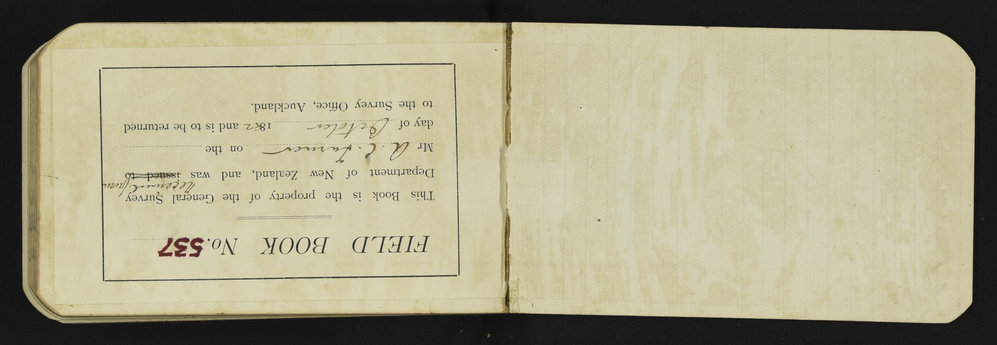 FIELD BOOK No. 537
This Book is the property of the General Survey
Department of New Zealand, and was issued to received from
Mr A. C. Turner on the
day of October 1882 and is to be returned
to the Survey Office, Auckland.